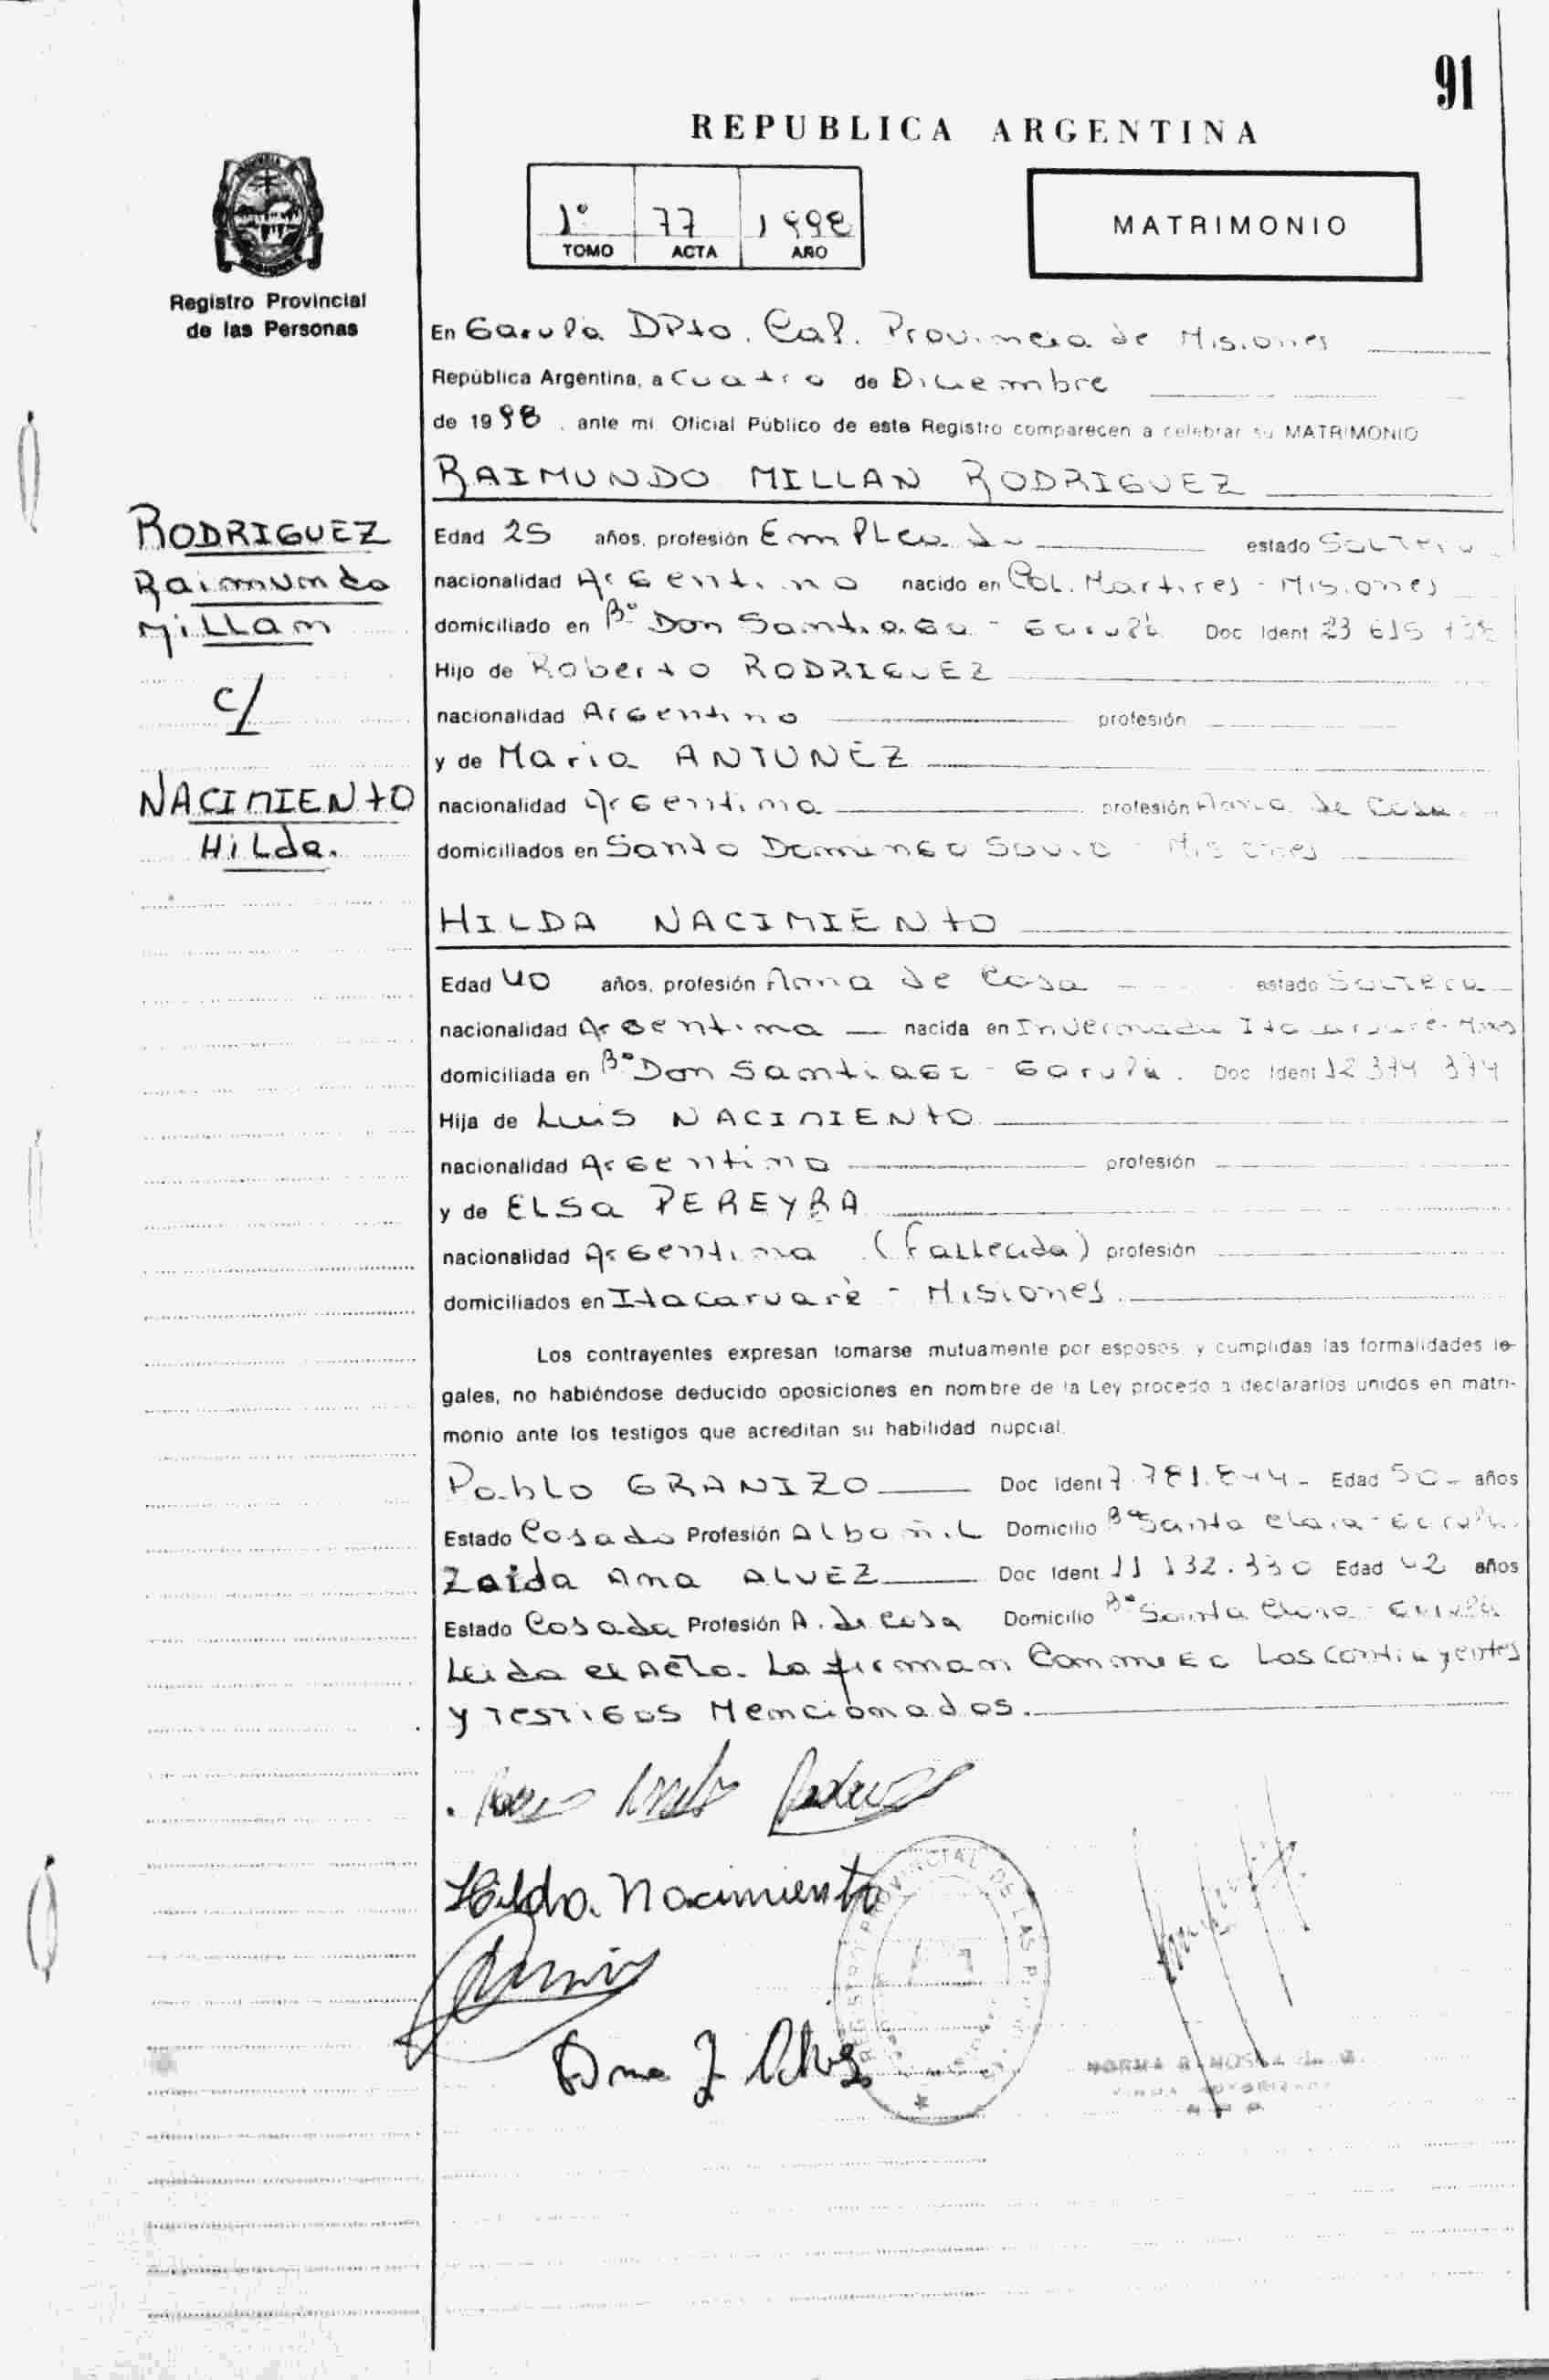 91
REPUBLICA ARGENTINA
1° 77 1998
TOMO ACTA AÑO
MATRIMONIO
Registro Provincial
de las Personas
En Garupá DPto. Cap. Provincia de Misiones
República Argentina, a Cuatro de Diciembre
de 1998, ante mi Oficial Público de este Registro comparecen a celebrar su MATRIMONIO
RAIMUNDO MILLAN RODRIGUEZ
RODRIGUEZ
Raimundo
Millan
c/
NACIMIENtO
HiLda.
Edad 25 años, profesión EmPLeado estado SoLTero
nacionalidad Argentino nacido en Col. Martires - Misiones
domiciliado en B° Don Santiago - Garupá Doc Ident 23 615
Hijo de Roberto RODRIGUEZ
nacionalidad Argentino profesión
y de Maria ANTUNEZ
nacionalidad Argentina profesión Ama de Casa
domiciliados en Santo Domingo Savio - Misiones
HILDA NACIMIENtO
Edad 40 años, profesión Ama de Casa estado SoLTera
nacionalidad Argentina nacida en Invernada Itacaruaré - Mnes
domiciliada en B° Don Santiago - Garupá. Doc Ident 12 374 374
Hija de Luis NACIMIENtO
nacionalidad Argentino profesión
y de ELSa PEREYRA
nacionalidad Argentina (FaLLecida) profesión
domiciliados en Itacaruarè - Misiones.
Los contrayentes expresan tomarse mutuamente por esposos, y cumplidas las formalidades le-
gales, no habiéndose deducido oposiciones en nombre de la Ley procedo a declararlos unidos en matri-
monio ante los testigos que acreditan su habilidad nupcial.
Pablo GRANIZO Doc Ident 7.781.844 - Edad 50 - años
Estado Casado Profesión ALbañiL Domicilio B° Santa Clara - Garupá.
Zaida Ana ALVEZ Doc Ident 11 132.330 Edad 42 años
Estado Casada Profesión A. de Casa Domicilio B° Santa Clara - Garupá
Leida el Acta. La firman Conmigo Los contrayentes
y Testigos Mencionados.
Hilda. Nacimiento
Ana Z Alvez
REGISTRO PROVINCIAL DE LAS
NORMA